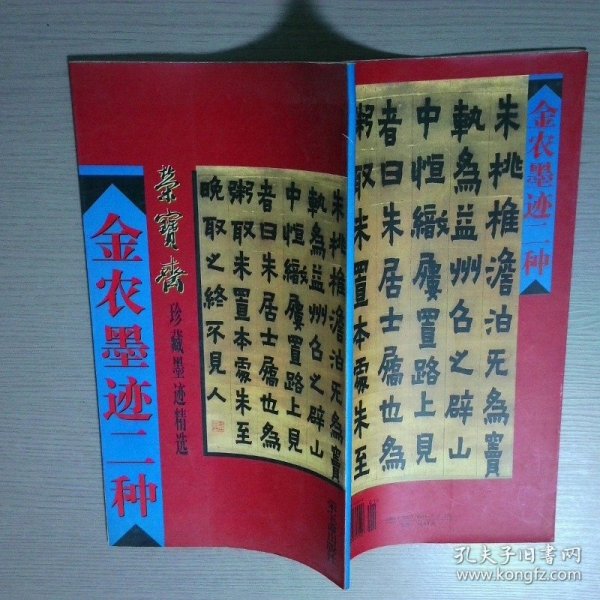 金农墨迹二种
榮寶齋
珍藏墨迹精选
朱桃椎澹泊无為竇
軌為益州名之辟山
中恒織屨置路上見
者曰朱居士屩也為
粥取米置本處朱至
晚取之終不見人
金农墨迹二种
朱桃椎澹泊无為竇
軌為益州名之辟山
中恒織屨置路上見
者曰朱居士屩也為
粥取米置本處朱至
孔夫子旧书网
www.kongfz.com